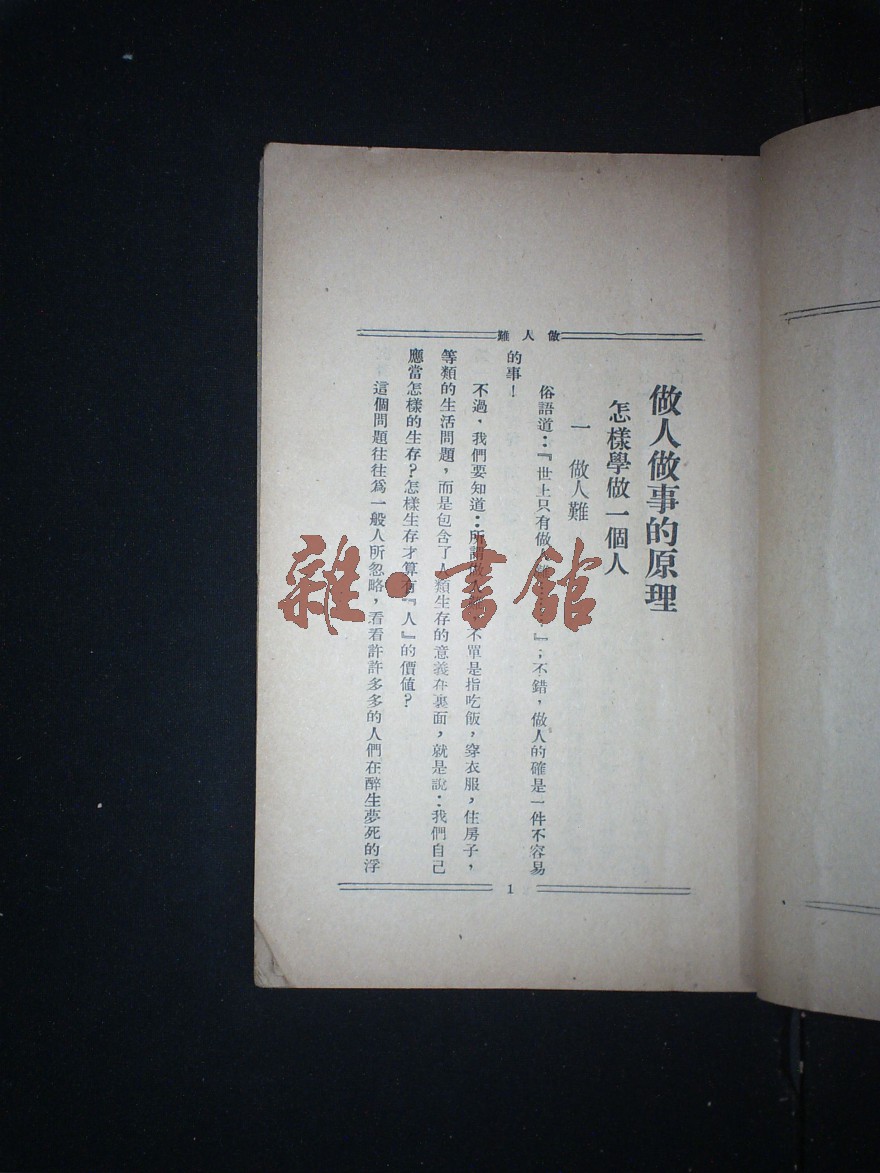 做人難
做人做事的原理
怎樣學做一個人
一 做人難
俗語道：『世上只有做人……』；不錯，做人的確是一件不容易
的事！
不過，我們要知道：所謂做 不單是指吃飯，穿衣服，住房子，
等類的生活問題，而是包含了人類生存的意義在裏面，就是說：我們自己
應當怎樣的生存？怎樣生存才算有『人』的價值？
這個問題往往爲一般人所忽略，看看許許多多的人們在醉生夢死的浮
1
雜·書館